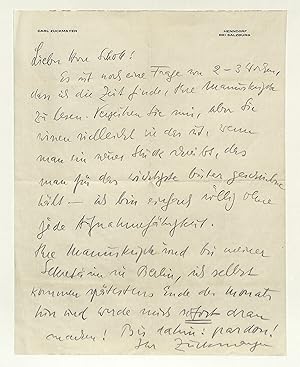 CARL ZUCKMAYER
HENNDORF
BEI SALZBURG
Lieber Herr Schott!
Es ist noch eine Frage von 2–3 Wochen,
dass ich die Zeit finde, Ihre Manuskripte
zu lesen. Verzeihen Sie mir, aber Sie
wissen vielleicht wie das ist, wenn
man ein neues Stück schreibt, das
man für das wichtigste bisher geschriebene
hält – ich bin einfach völlig ohne
jede Aufnahmefähigkeit.
Ihre Manuskripte sind bei meiner
Sekretärin in Berlin, ich selbst
komme spätestens Ende des Monats
hin und werde mich sofort dran
machen! Bis dahin: pardon!
Ihr Zuckmayer